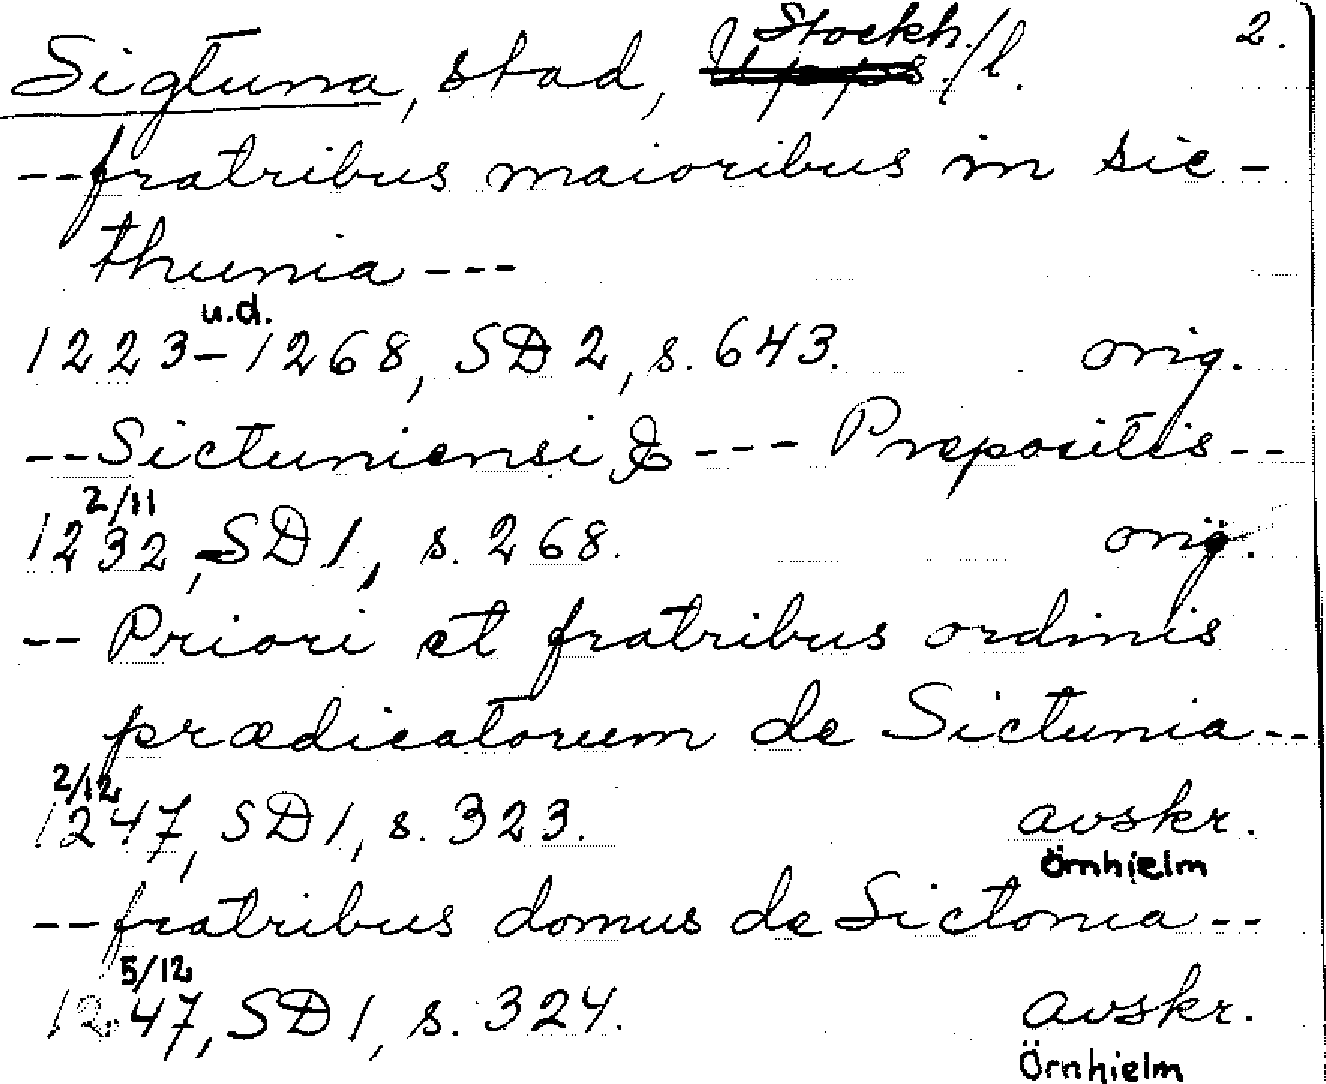 Sigtuna, stad, Upps. Stockh./l. 2.
--fratribus maioribus in Sic-
thunia---
u.d.
1223-1268, SD 2, s. 643. orig.
--Sictuniensi & --- Prepositis--
2/11
1232, SD 1, s. 268. orig.
-- Priori et fratribus ordinis
prædicatorum de Sictunia--
2/12
1247, SD 1, s. 323. avskr.
Örnhielm
--fratribus domus de Sictonia--
5/12
1247, SD 1, s. 324. avskr.
Örnhielm